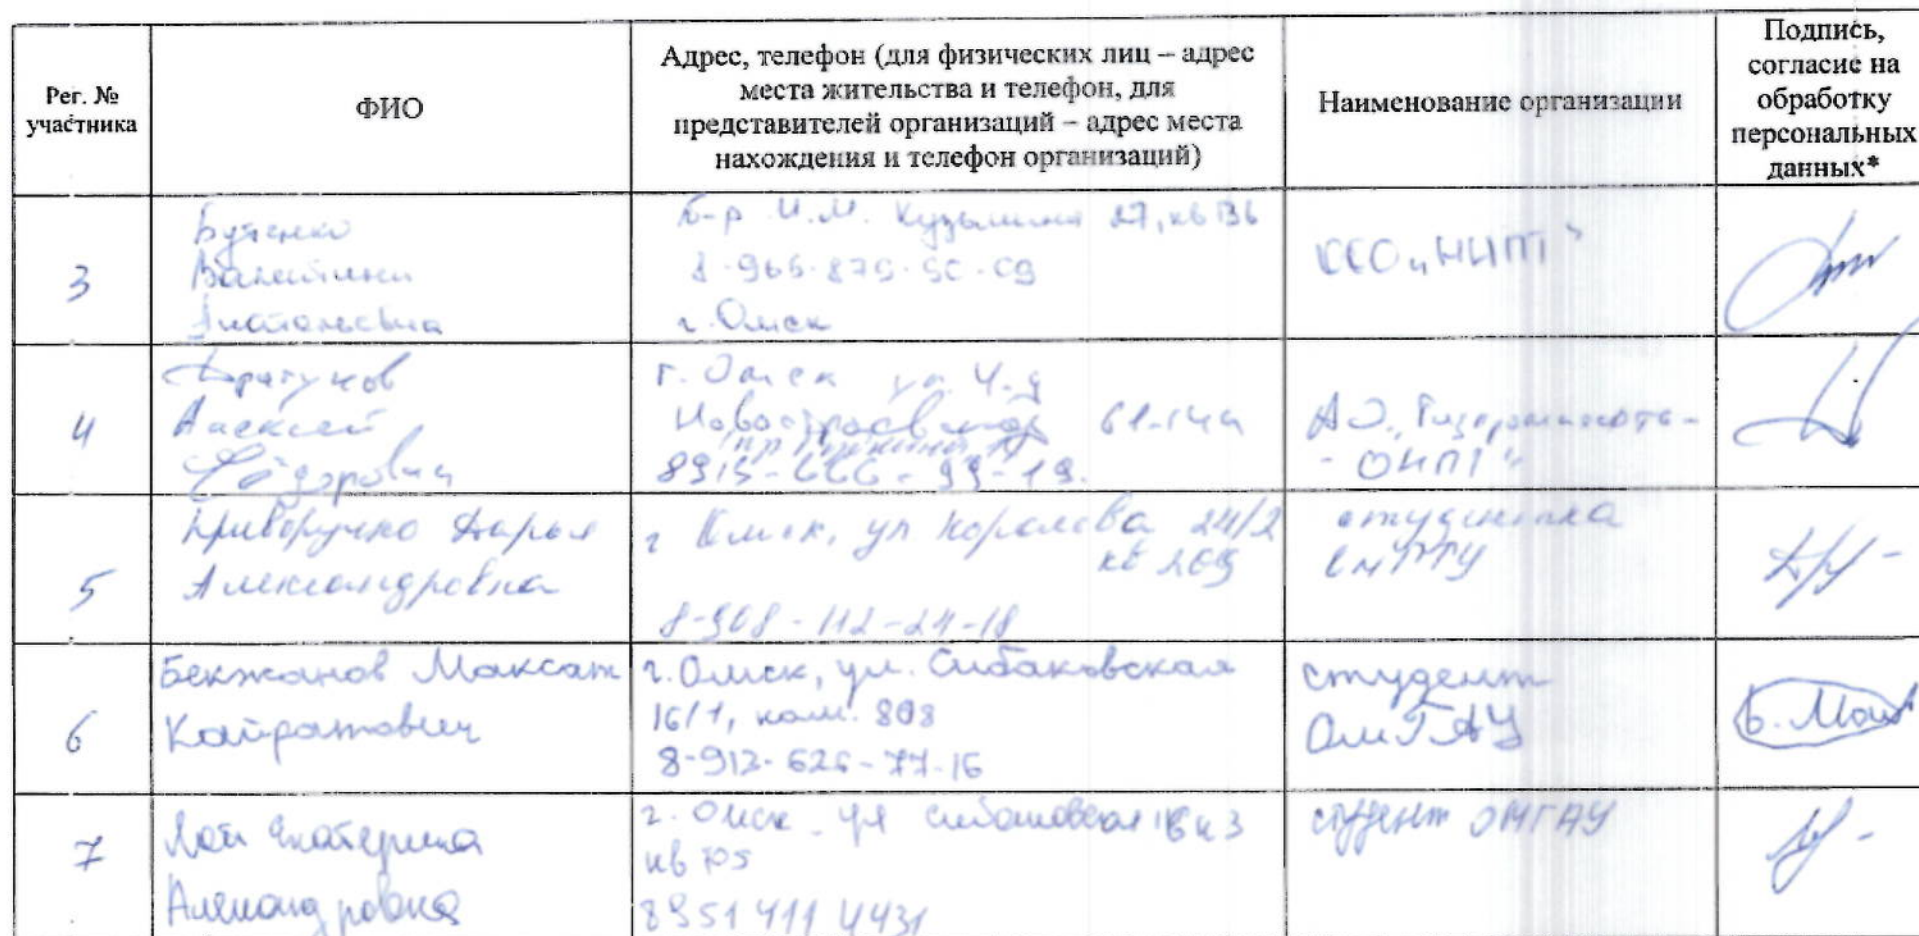 Рег. №
участника
ФИО
Адрес, телефон (для физических лиц – адрес
места жительства и телефон, для
представителей организаций – адрес места
нахождения и телефон организаций)
Наименование организации
Подпись,
согласие на
обработку
персональных
данных*
3
Бутенко
Валентина
Анатольевна
Б-р И.М. Кузьмина 27, кв
г. Омск
4
Алексей
Фёдорович
г. Омск
61-144
АО
- ОНПГ"
5
Криворучко Дарья
Александровна
г Омск, ул Королева 24/2
кв 209
8-908-112-24-18
студентка
ОмГТУ
6
Бекжанов Максат
Кайратович
г. Омск, ул. Сибаковская
16/1, ком. 808
8-913-626-77-16
студент
ОмГАУ
Б. Мак
7
Екатерина
Александровна
г. Омск ул Сибаковская
кв
8951 411 4431
студент ОМГАУ